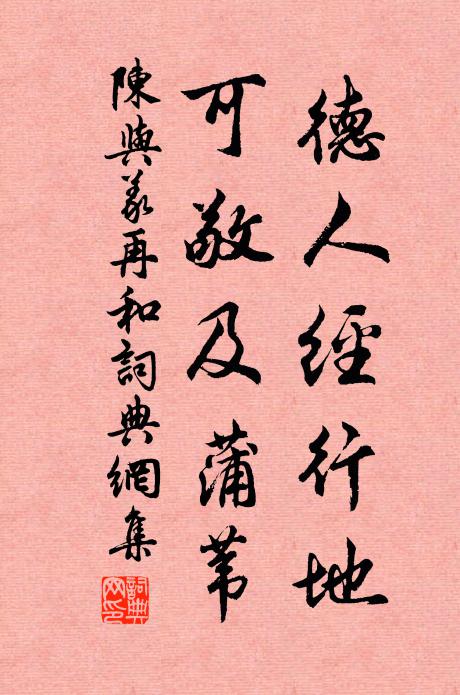 德人經行地
可敬及蒲苇
陳與義再和詞典網集
詞典
网印